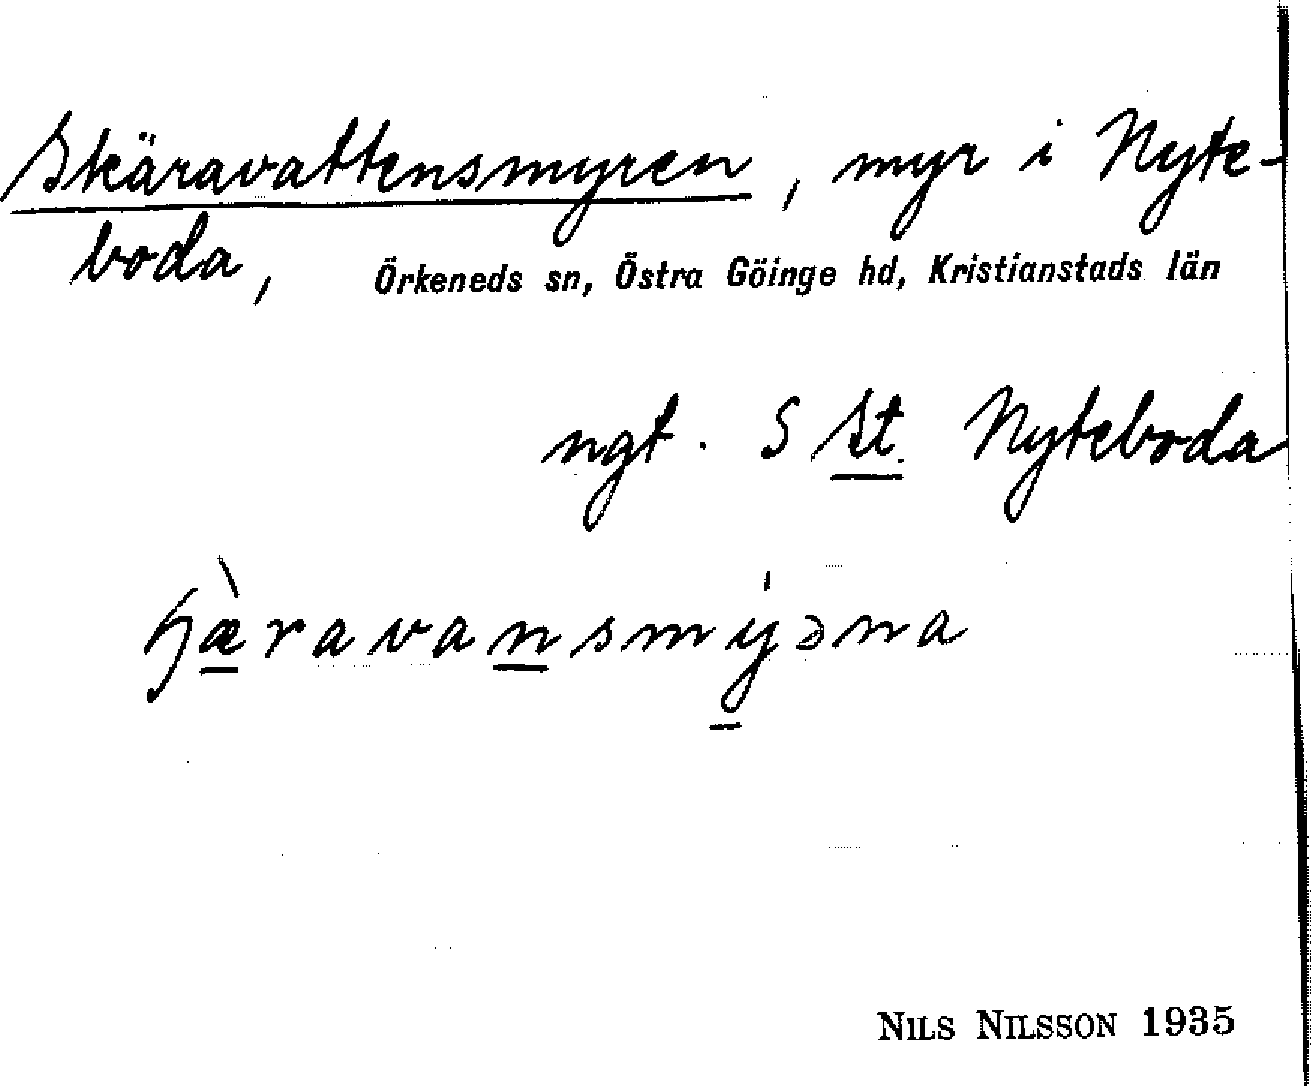 Skäravattensmyren, myr i Nyte-
boda, Örkeneds sn, Östra Göinge hd, Kristianstads län
ngt. S st. Nyteboda
NILS NILSSON 1935